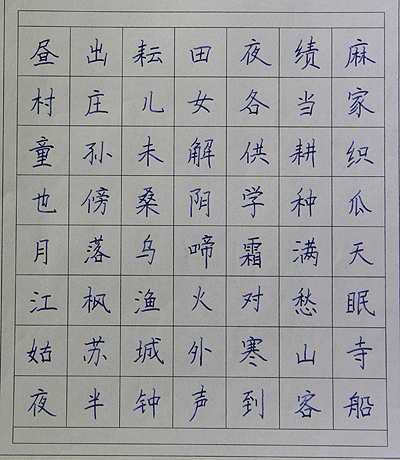 昼出耘田夜绩麻
村庄儿女各当家
童孙未解供耕织
也傍桑阴学种瓜
月落乌啼霜满天
江枫渔火对愁眠
姑苏城外寒山寺
夜半钟声到客船